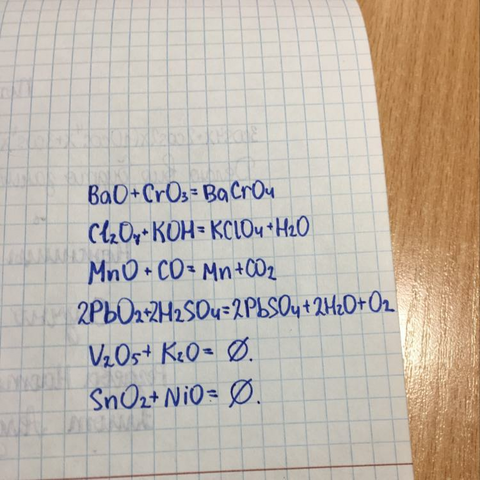 BaO + CrO₃ = BaCrO₄
Cl₂O₇ + KOH = KClO₄ + H₂O
MnO + CO = Mn + CO₂
2PbO₂ + 2H₂SO₄ = 2PbSO₄ + 2H₂O + O₂
V₂O₅ + K₂O = Ø.
SnO₂ + NiO = Ø.